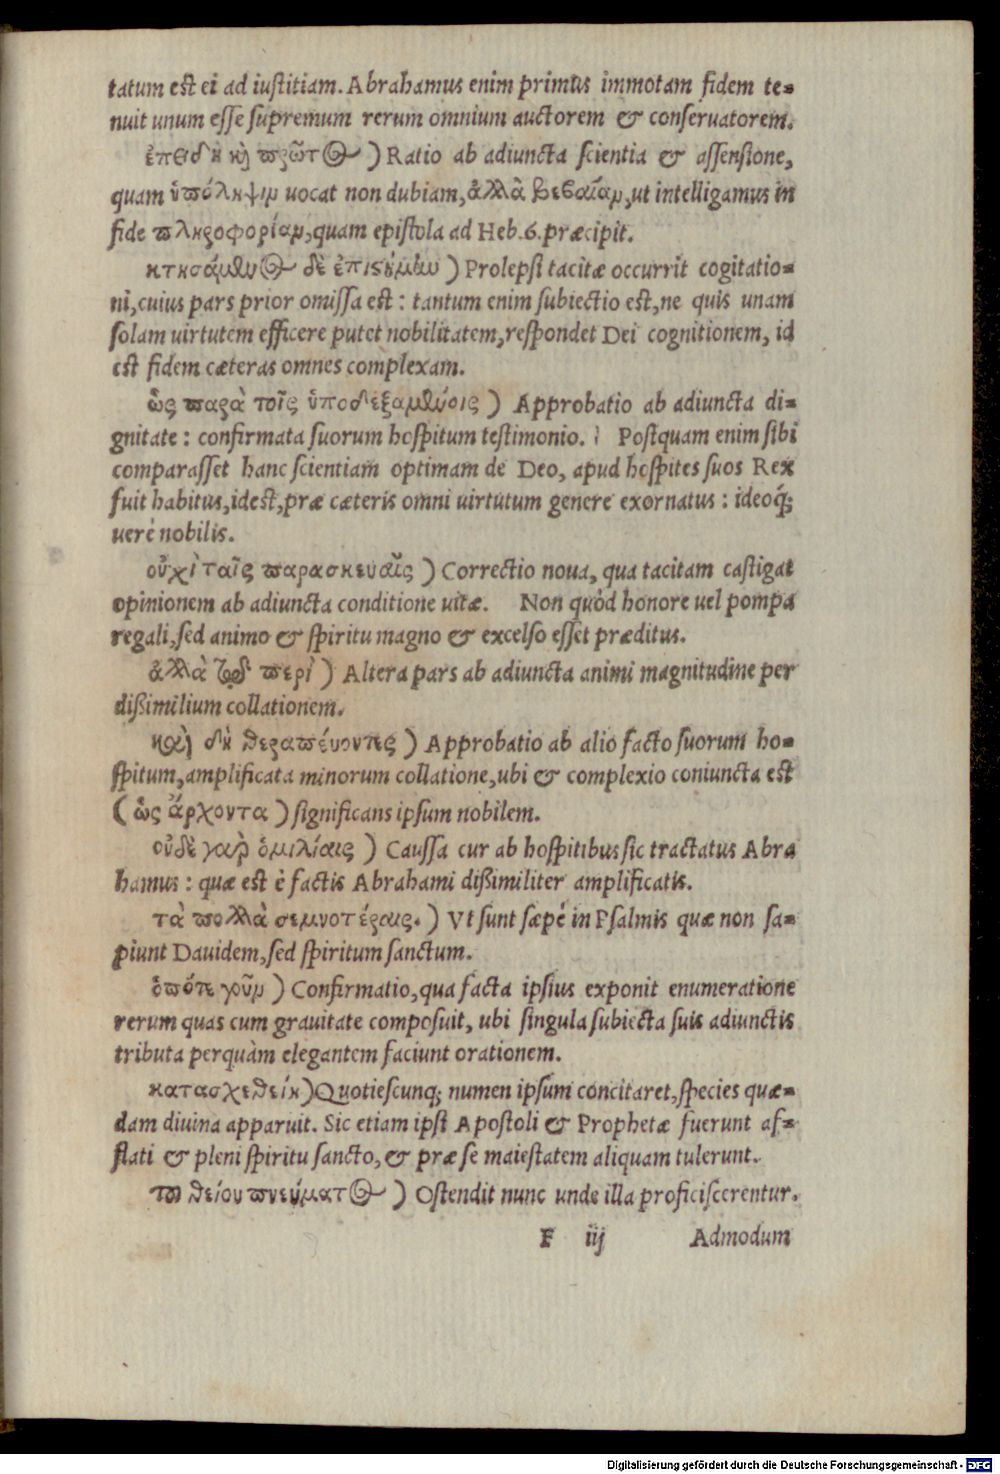 tatum est ei ad iustitiam. Abrahamus enim primus immotam fidem te-
nuit unum esse supremum rerum omnium auctorem & conseruatorem.
ἐπειδὴ καὶ πρῶτος ) Ratio ab adiuncta scientia & assensione,
quam ὑπόληψιν uocat non dubiam, ἀλλὰ βεβαίαν, ut intelligamus in
fide πληροφορίαν, quam epistola ad Heb. 6. præcipit.
κτησάμενος δὲ ἐπιστήμην ) Prolepsi tacitæ occurrit cogitatio-
ni, cuius pars prior omissa est: tantum enim subiectio est, ne quis unam
solam uirtutem efficere putet nobilitatem, respondet Dei cognitionem, id
est fidem cæteras omnes complexam.
ὡς παρὰ τοῖς ὑποδεξαμένοις ) Approbatio ab adiuncta di-
gnitate: confirmata suorum hospitum testimonio. Postquam enim sibi
comparasset hanc scientiam optimam de Deo, apud hospites suos Rex
fuit habitus, id est, præ cæteris omni uirtutum genere exornatus: ideoq́;
uerè nobilis.
οὐχὶ ταῖς παρασκευαῖς ) Correctio noua, qua tacitam castigat
opinionem ab adiuncta conditione uitæ. Non quòd honore uel pompa
regali, sed animo & spiritu magno & excelso esset præditus.
ἀλλὰ τῷ περὶ ) Altera pars ab adiuncta animi magnitudine per
dißimilium collationem.
καὶ δὴ θεραπεύοντες ) Approbatio ab alio facto suorum ho-
spitum, amplificata minorum collatione, ubi & complexio coniuncta est
( ὡς ἄρχοντα ) significans ipsum nobilem.
οὐδὲ γὰρ ὁμιλίαις ) Caussa cur ab hospitibus sic tractatus Abra
hamus: quæ est è factis Abrahami dißimiliter amplificatis.
τὰ πολλὰ σεμνοτέραις. ) Vt sunt sæpè in Psalmis quæ non sa-
piunt Dauidem, sed spiritum sanctum.
ὁπότε γοῦν ) Confirmatio, qua facta ipsius exponit enumeratione
rerum quas cum grauitate composuit, ubi singula subiecta suis adiunctis
tributa perquàm elegantem faciunt orationem.
κατασχεθείη ) Quotiescunq; numen ipsum concitaret, species quæ-
dam diuina apparuit. Sic etiam ipsi Apostoli & Prophetæ fuerunt af-
flati & pleni spiritu sancto, & præ se maiestatem aliquam tulerunt.
τοῦ θείου πνεύματος ) Ostendit nunc unde illa proficiscerentur.
F iij Admodum
Digitalisierung gefördert durch die Deutsche Forschungsgemeinschaft - DFG